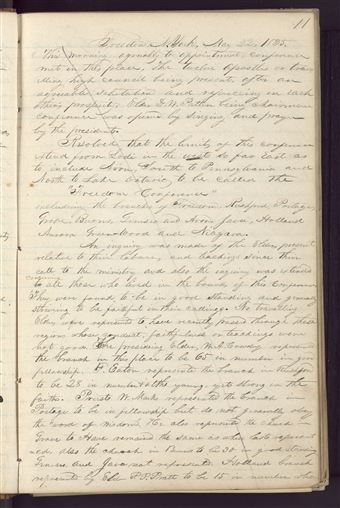 11
Freedom N. York, May 22, 1835.
This morning agreeably to appointment, conference
met in this place, The twelve Apostles or trav-
elling high council being present, after an
agreeable salutation and rejoicing in each
others prosperity, Elder D. W. Patten being chairman
conference was opened by singing and prayer
by the president.
Resolved, that the limits of this conference
extend from Lodi in the west so far East as
to include Avon, South to Pennsylvania and
North to Lake Ontario, to be called the
"Freedom Conference"
including the branches of Freedom, Rushford, Portage,
Grove, Burns, Genesee and Avon, Java, Holland
Aurora Greenwood and Niagara.
An inquiry was made by the Elders present
relative to their labors, and teachings since their
call to the ministry and also the inquiry was extended
to all those who lived in the bounds of this conference
They were found to be in good standing and generally
striving to be faithful in their callings. No travelling
Elders were represented to have recently passed through these
regions whose conduct, faithfulness or teachings were
not good. The presiding Elder, W. A. Cowdry represented
the branch in this place to be 65 in number in good
fellowship. F. Eaton represented the branch in Rushford
to be 28 in number altho young, yet strong in the
faith. Priest W. Marks represented the branch in
Portage to be in fellowship but do not generally obey
the word of wisdom. He also represents the church in
Grove to have remained the same as when last represent-
ed. Also the church in Burns to be 30 in good standing
Genesee and Java not represented. Holland branch
represented by Elder P. P. Pratt to be 15 in number who